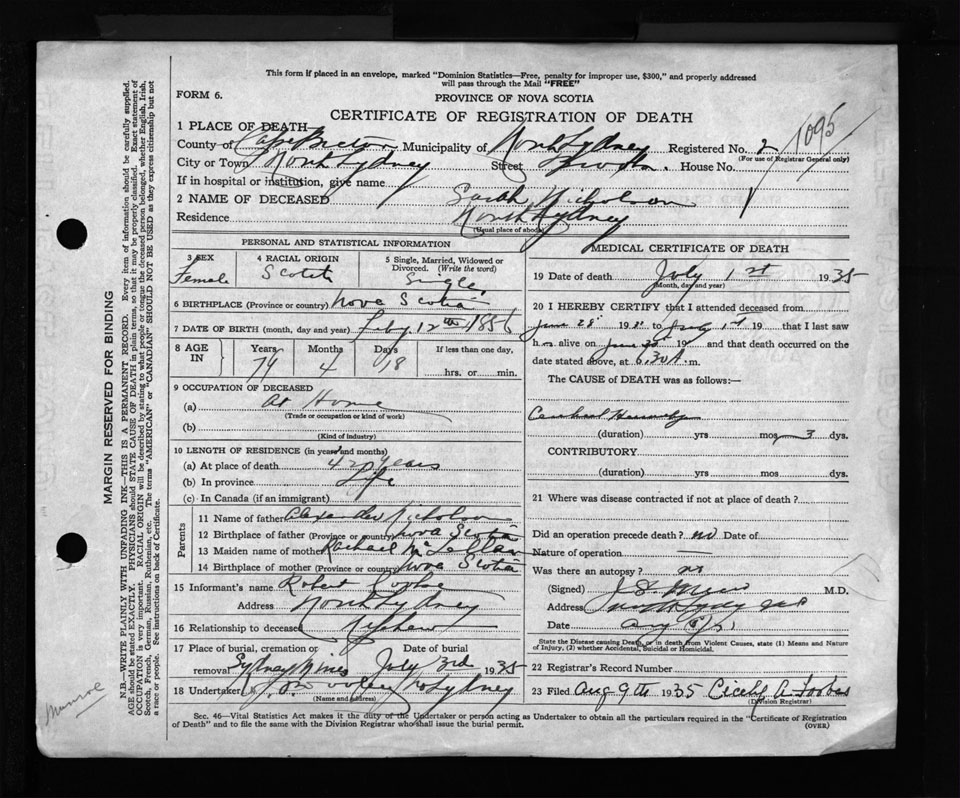 This form if placed in an envelope, marked "Dominion Statistics—Free, penalty for improper use, $300," and properly addressed
will pass through the Mail "FREE"
FORM 6.
PROVINCE OF NOVA SCOTIA
CERTIFICATE OF REGISTRATION OF DEATH
1095
1 PLACE OF DEATH
County of Cape Breton Municipality of North Sydney Registered No. 2
(For use of Registrar General only)
City or Town North Sydney Street House No.
If in hospital or institution, give name
2 NAME OF DECEASED Sarah Nicholson
Residence North Sydney
(Usual place of abode)
PERSONAL AND STATISTICAL INFORMATION
3 SEX Female
4 RACIAL ORIGIN Scotch
5 Single, Married, Widowed or Divorced. (Write the word) Single
6 BIRTHPLACE (Province or country) Nova Scotia
7 DATE OF BIRTH (month, day and year) Feby 12th 1856
8 AGE IN Years 79 Months 4 Days 18 If less than one day, hrs. or min.
9 OCCUPATION OF DECEASED
(a) At Home
(Trade or occupation or kind of work)
(b)
(Kind of industry)
10 LENGTH OF RESIDENCE (in years and months)
(a) At place of death 42 years
(b) In province Life
(c) In Canada (if an immigrant)
Parents
11 Name of father Alexander Nicholson
12 Birthplace of father (Province or country) Nova Scotia
13 Maiden name of mother Rachael
14 Birthplace of mother (Province or country) Nova Scotia
15 Informant's name Robert
Address North Sydney
16 Relationship to deceased Nephew
17 Place of burial, cremation or removal Sydney Mines Date of burial July 3rd 1935
18 Undertaker N. Sydney
(Name and address)
MEDICAL CERTIFICATE OF DEATH
19 Date of death July 1st 1935
(Month, day and year)
20 I HEREBY CERTIFY that I attended deceased from
June 28 19 to July 1st 19 that I last saw
h alive on June 30 19 and that death occurred on the
date stated above, at 6.30 A. m.
The CAUSE of DEATH was as follows:—
Cerebral
(duration) yrs mos 3 dys.
CONTRIBUTORY
(duration) yrs mos dys.
21 Where was disease contracted if not at place of death?
Did an operation precede death? no Date of
Nature of operation —
Was there an autopsy? no
(Signed) M.D.
Address North Sydney
Date
State the Disease causing Death, or in death from Violent Causes, state (1) Means and Nature of Injury, (2) whether Accidental, Suicidal or Homicidal.
22 Registrar's Record Number
23 Filed Aug 9th 1935 Cicely A. Forbes
(Division Registrar)
Sec. 46—Vital Statistics Act makes it the duty of the Undertaker or person acting as Undertaker to obtain all the particulars required in the "Certificate of Registration
of Death" and to file the same with the Division Registrar who shall issue the burial permit.
(OVER)
MARGIN RESERVED FOR BINDING
N.B.—WRITE PLAINLY WITH UNFADING INK—THIS IS A PERMANENT RECORD. Every item of information should be carefully supplied.
AGE should be stated EXACTLY. PHYSICIANS should STATE CAUSE OF DEATH in plain terms, so that it may be properly classified. Exact statement of
OCCUPATION is very important. RACIAL ORIGIN will be described by stating to what people or tongue the deceased person belonged, whether English, Irish,
Scotch, French, German, Russian, Ruthenian, etc. The terms "AMERICAN" or "CANADIAN" SHOULD NOT BE USED as they express citizenship but not
a race or people. See instructions on back of Certificate.
Munroe